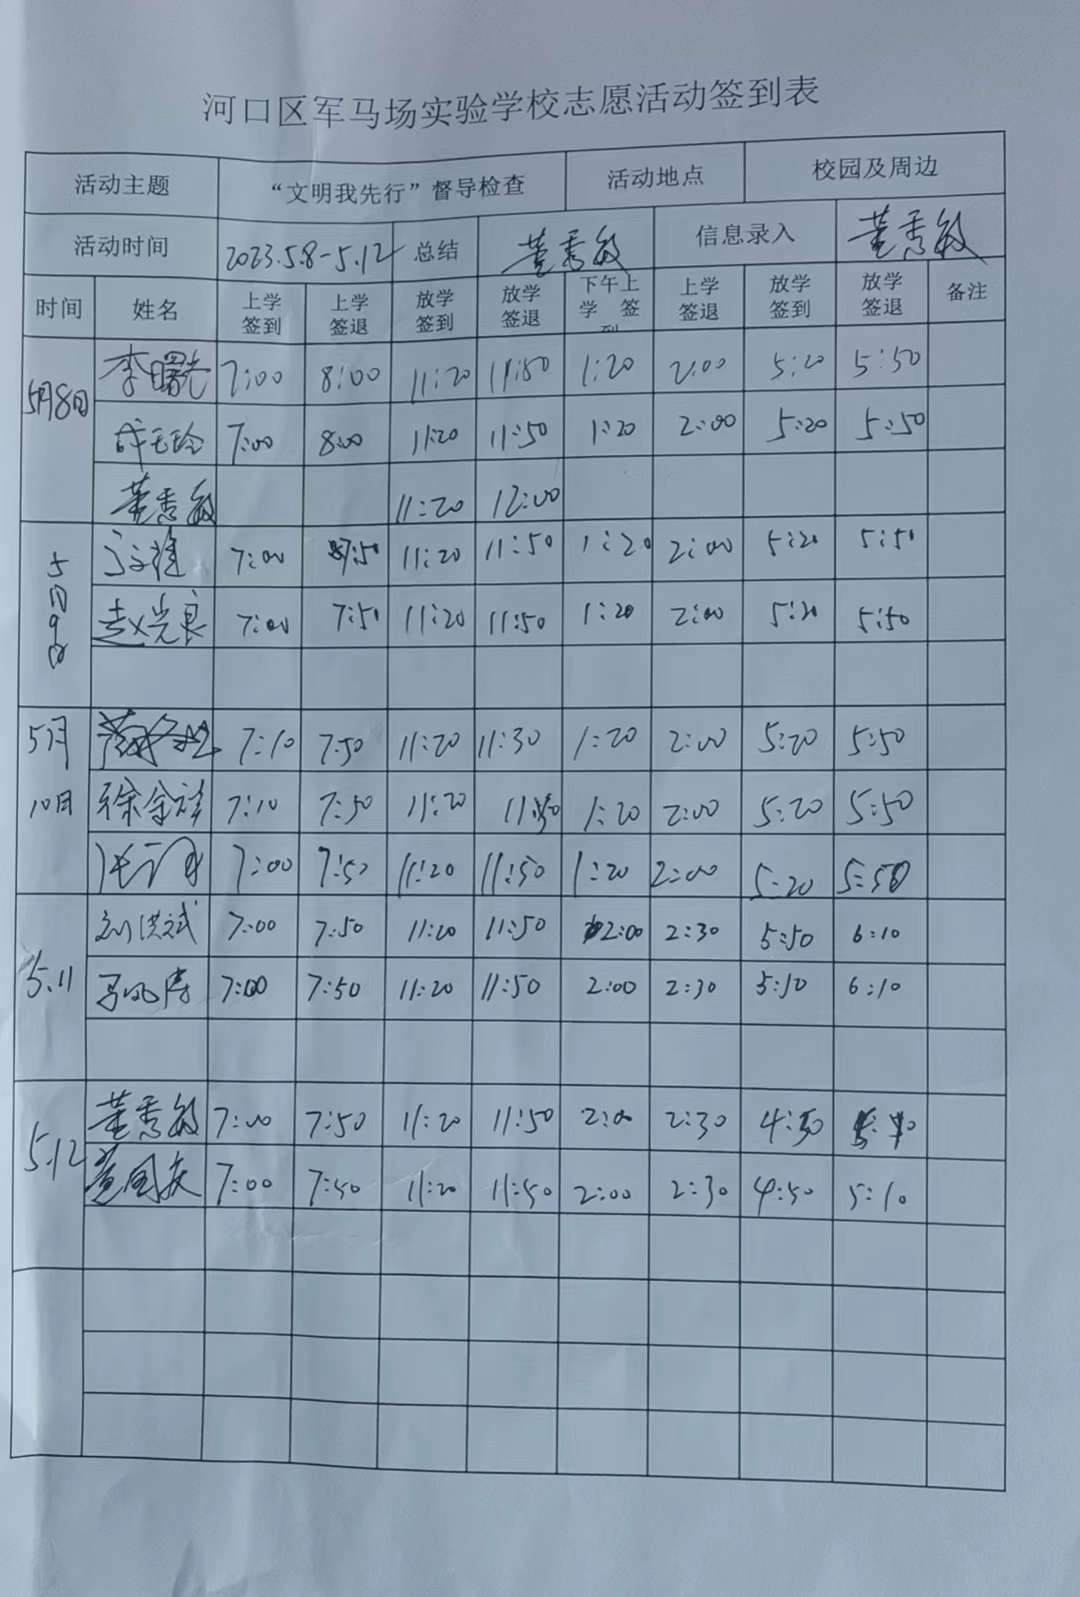 河口区军马场实验学校志愿活动签到表
活动主题 “文明我先行”督导检查 活动地点 校园及周边
活动时间 2023.5.8-5.12 总结 董秀敏 信息录入 董秀敏
时间 姓名 上学签到 上学签退 放学签到 放学签退 下午上学 签到 上学签退 放学签到 放学签退 备注
5月8日 李曙光 7:00 8:00 11:20 11:50 1:20 2:00 5:20 5:50
7:00 8:00 11:20 11:50 1:20 2:00 5:20 5:50
董秀敏 11:20 12:00
5月9日 7:00 7:50 11:20 11:50 1:20 2:00 5:20 5:50
赵光良 7:00 7:50 11:20 11:50 1:20 2:00 5:20 5:50
5月10日 7:10 7:50 11:20 11:30 1:20 2:00 5:20 5:50
徐金祥 7:10 7:50 11:20 1:20 2:00 5:20 5:50
7:00 7:50 11:20 11:50 1:20 2:00 5:20 5:50
5.11 刘洪斌 7:00 7:50 11:20 11:50 2:00 2:30 5:50 6:10
马凤涛 7:00 7:50 11:20 11:50 2:00 2:30 5:50 6:10
5.12 董秀敏 7:00 7:50 11:20 11:50 2:00 2:30 4:50
董国庆 7:00 7:50 11:20 11:50 2:00 2:30 4:50 5:10